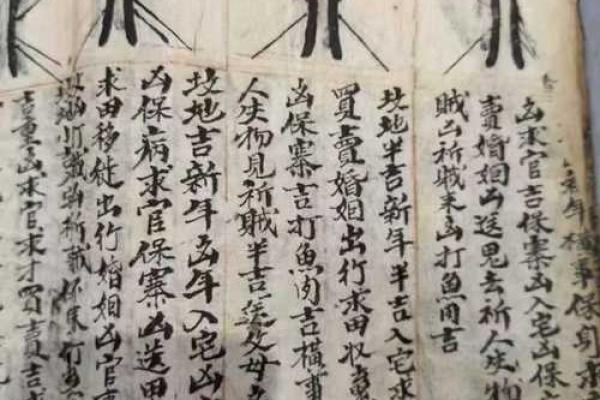 新年橫事保身求
凶求官吉保寨凶入宅凶保
賣婚姻凶送鬼去祈人失物
賊凶祈賊來凶打魚肉吉
坟地半吉新年半吉入宅求
買賣婚姻出行求田收
凶保寨吉打魚肉吉橫事
人失物見祈賊半吉送父母
坟地吉新年凶年入宅凶
凶保病求官保寨凶送田
求田移徙出行婚姻凶官事
吉重凶求官求才買賣吉求